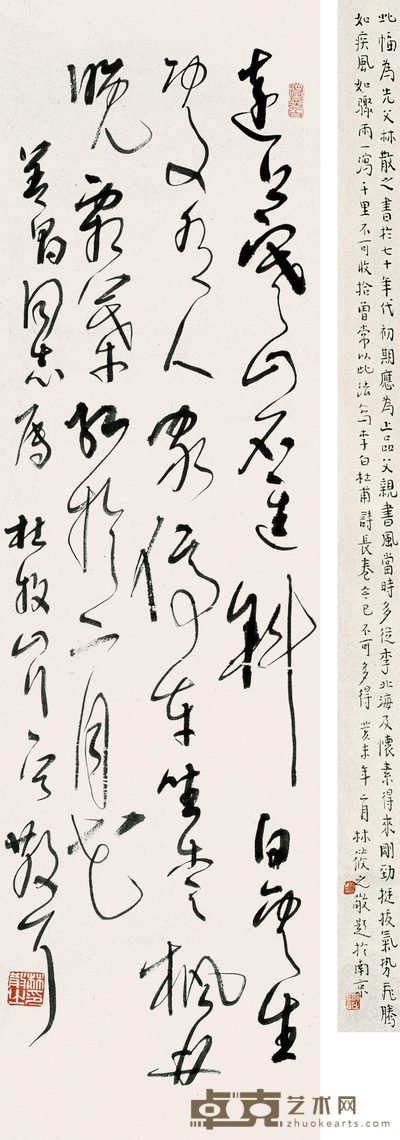 此幅為先父林散之書於七十年代初期應為上品父親書風當時多從李北海及懷素得來剛勁挺拔氣勢飛騰
如疾風如驟雨一瀉千里不可收拾曾常以此法寫李白杜甫詩長卷今已不可多得 癸未年二月林筱之敬題於南京
遠上寒山石徑斜 白雲生
處有人家停車坐愛枫林
晚霜葉紅於二月花
同志屬 杜牧山行句 散耳
卓克艺术网
www.zhuokearts.com